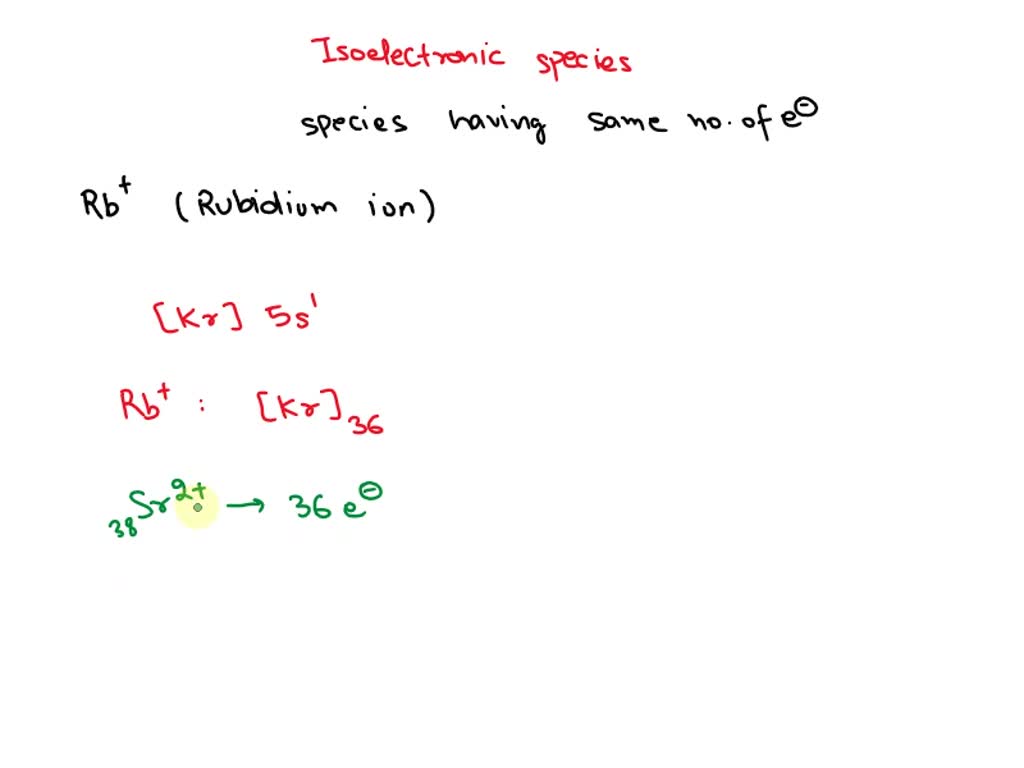 Isoelectronic species
species having same no. of e⊖
Rb⁺ (Rubidium ion)
[Kr] 5s¹
Rb⁺ : [Kr]₃₆
₃₈Sr²⁺ → 36 e⊖